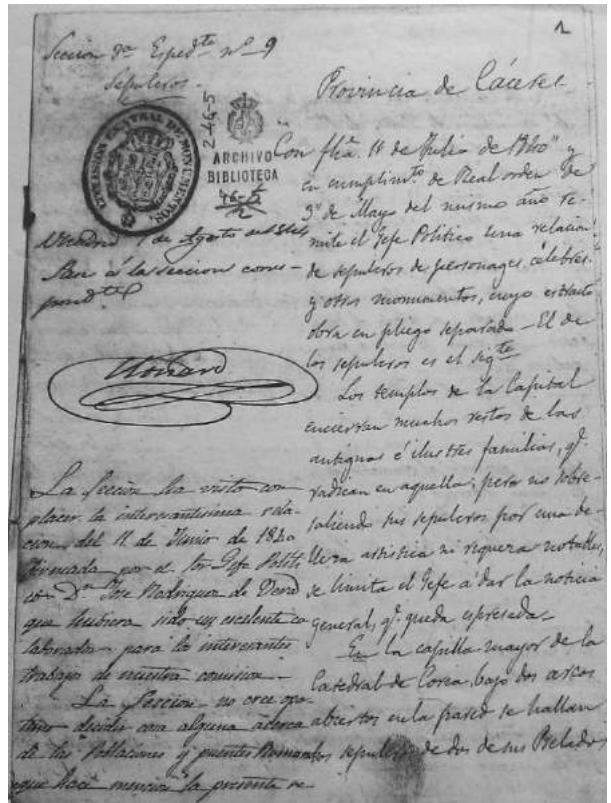 1
Seccion 3ª Esped.te nº 9
Sepulcros.
COMISION CENTRAL DE MONUMENTOS
246-5
ARCHIVO
BIBLIOTECA
46-5
2
Madrid 1 de Agosto de 1844
Pase á la Seccion corres-
pond.te
La Seccion ha visto con
placer la interesantisima rela-
cion del 11 de Junio de 1840
firmada por el Sor Gefe Politi
co Dn Jose Rodriguez de
que hubiera sido un escelente co
laborador para los interesantes
trabajos de nuestra comision.
La Seccion no cree opor
tuno decidir cosa alguna acerca
de las Poblaciones y puentes Romanos
que hace mencion la presente re-
Provincia de Cáceres
Con fha. 11 de Julio de 1840 y
en cumplimto. de Real orden de
3 de Mayo del mismo año re-
mite el Jefe Politico una relacion
de sepulcros de personages célebres
y otros monumentos, cuyo estracto
obra en pliego separado - El de
los sepulcros es el sigte
Los templos de la Capital
encierran muchos restos de las
antiguas é ilustres familias, q.
radican en aquella; pero no sobre-
saliendo sus sepulcros por una be-
lleza artistica ni riqueza notables,
se limita el Jefe a dar la noticia
general, q. queda espresada
En la capilla mayor de la
Catedral de Coria, bajo dos arcos
abiertos en la pared se hallan
los sepulcros de dos de sus Prelados